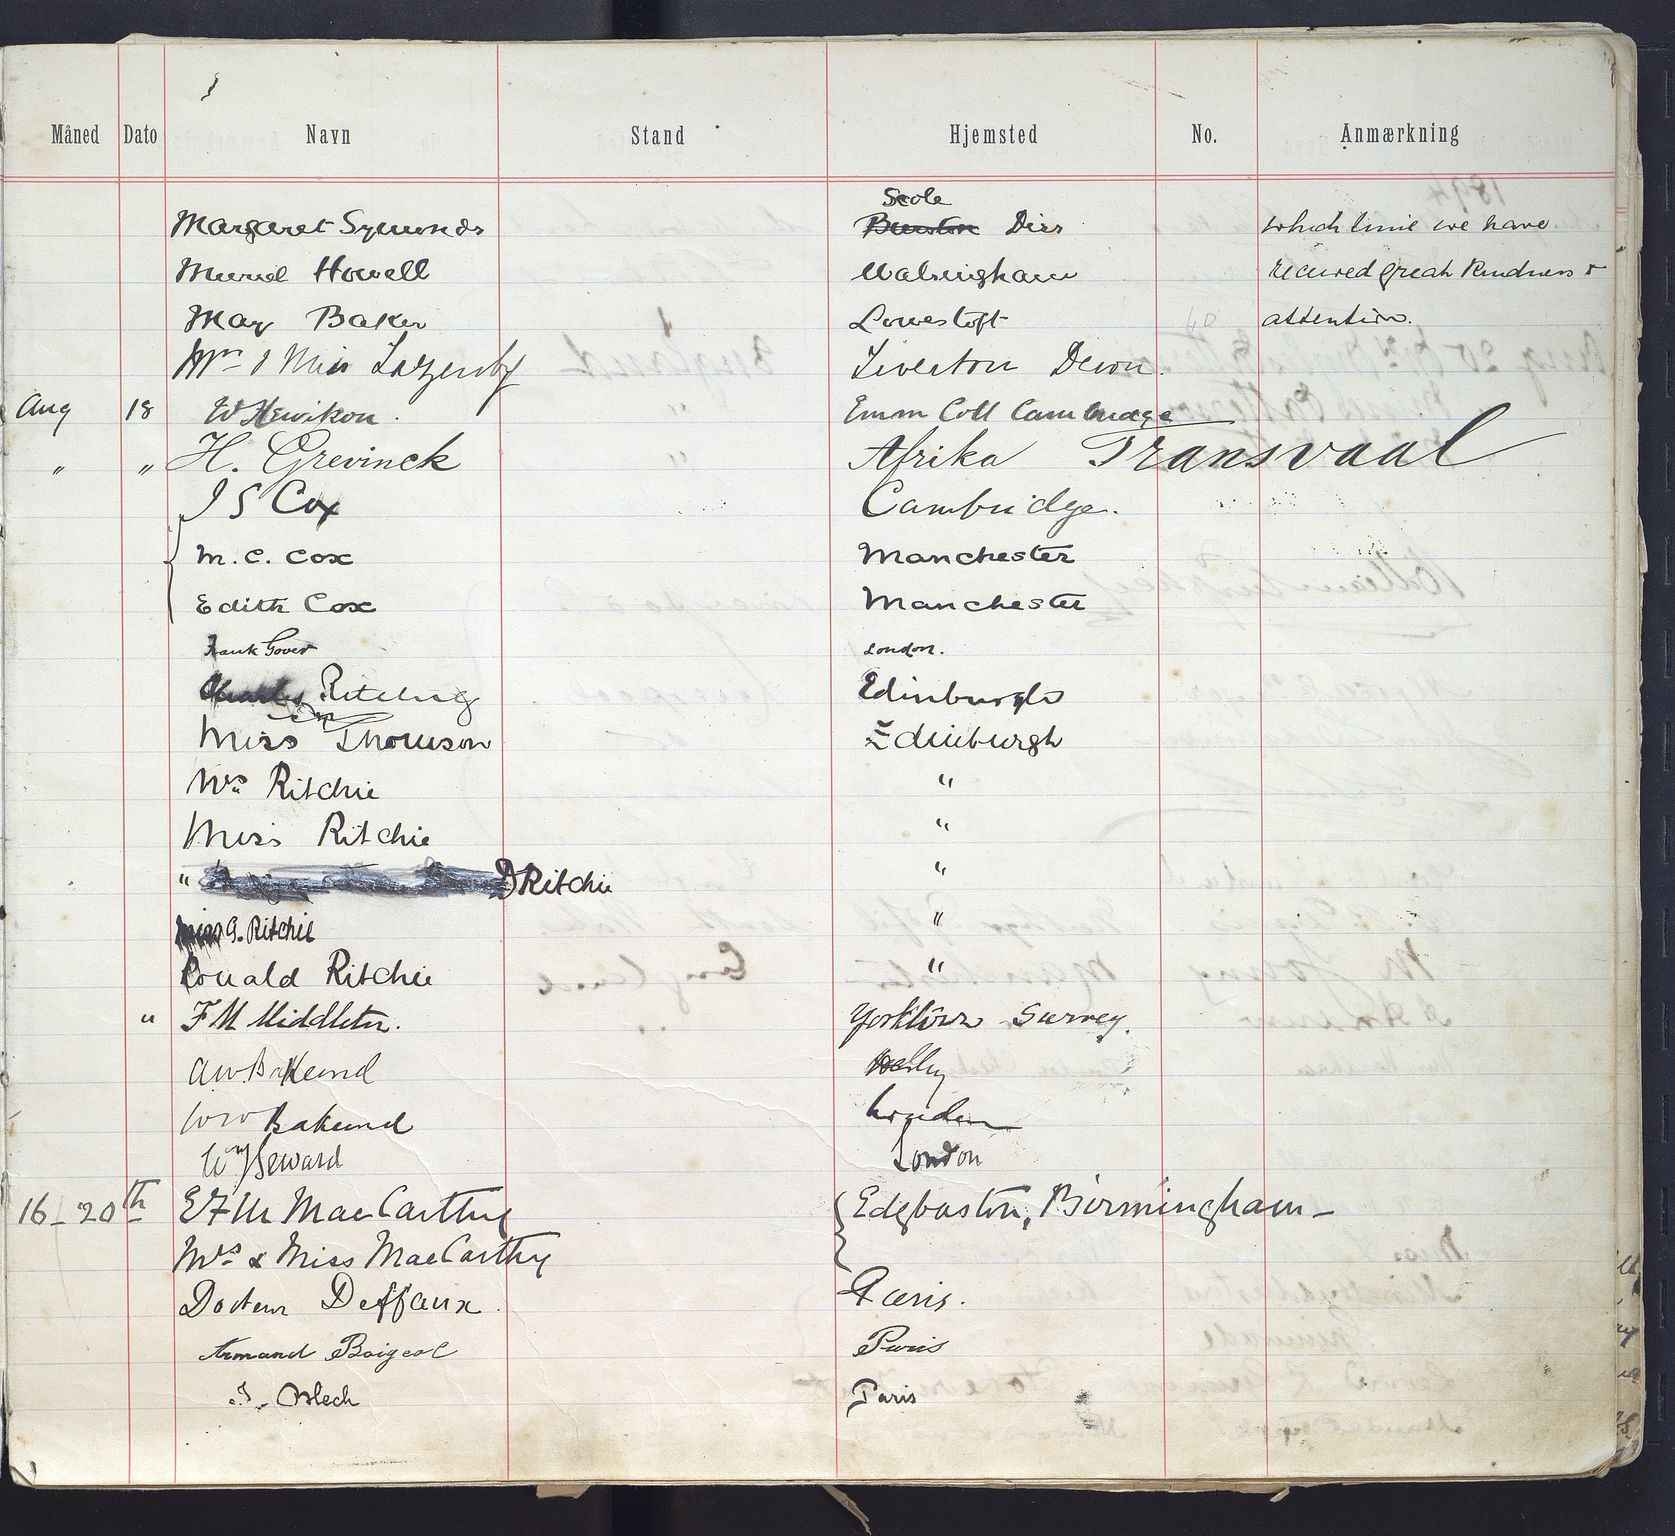 Måned Dato Navn Stand Hjemsted No. Anmærkning
Scole
Margaret Symonds Diss which time we have
Muriel Howell Walsingham received great kindness &
May Baker Lowestoft attention.
Mrs & Miss Lazenby Tiverton Devon.
Aug 18 W Hewikon. Emm Coll Cambridge
" " H. Grevinck Afrika Transvaal
J S Cox Cambridge.
M. C. Cox Manchester
Edith Cox Manchester
Frank Gover London.
Charles Edinburgh
Miss Thomson Edinburgh
Mrs Ritchie "
Miss Ritchie "
" D Ritchie "
Miss G. Ritchie "
Ronald Ritchie "
" F M Middleton. Yorktown Surrey.
A W
W W London
Wm Seward London
16_20th E F M MacCarthy Edgbaston, Birmingham_
Mrs & Miss MacCarthy
Docteur Deffaux. Paris.
Armand Boigeol Paris
J. Blech Paris